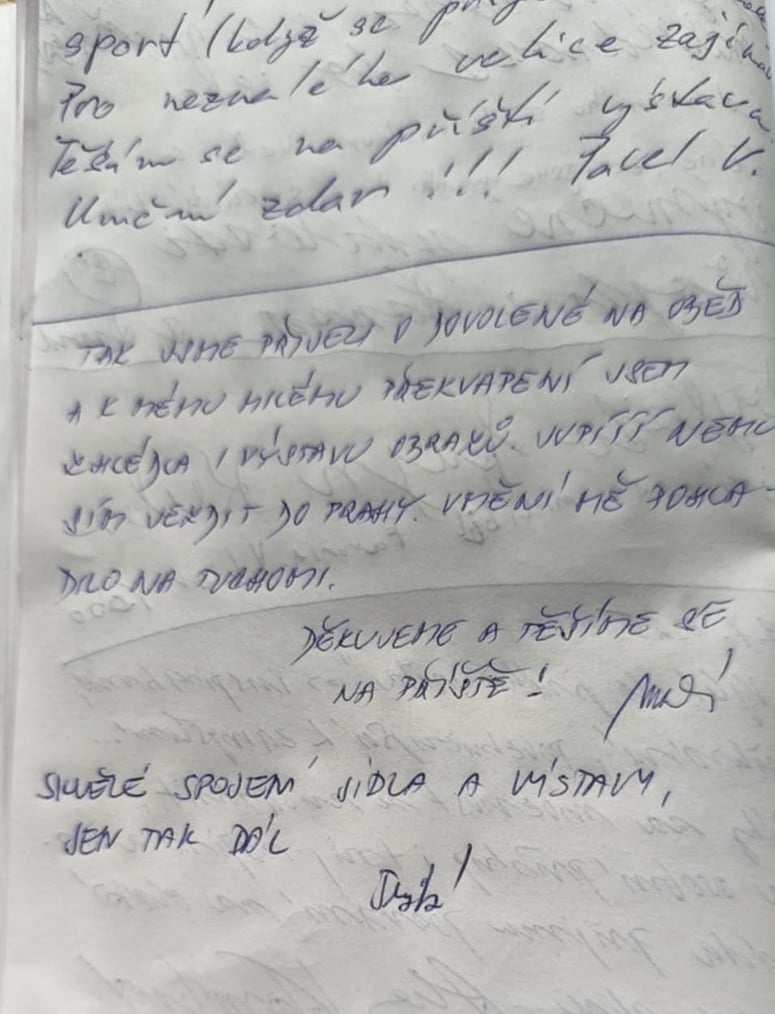 sport (když se
Pro neznalého velice
Těším se na příští výstavu
Umění zdar!!! Pavel V.
TAK JSME PŘIJELI V DOVOLENÉ NA OBĚD
A K MÉMU MILÉMU PŘEKVAPENÍ JSEM
ZHLÉDLA I VÝSTAVU OBRAZŮ. JJPÍŠÍ NEMU
SÍM JEZDIT DO PRAHY. UMĚNÍ MĚ POHLA-
DILO NA
DĚKUJEME A TĚŠÍME SE
NA PŘÍŠTĚ!
SKVĚLÉ SPOJENÍ JÍDLA A VÍSTAVY,
JEN TAK DÁL